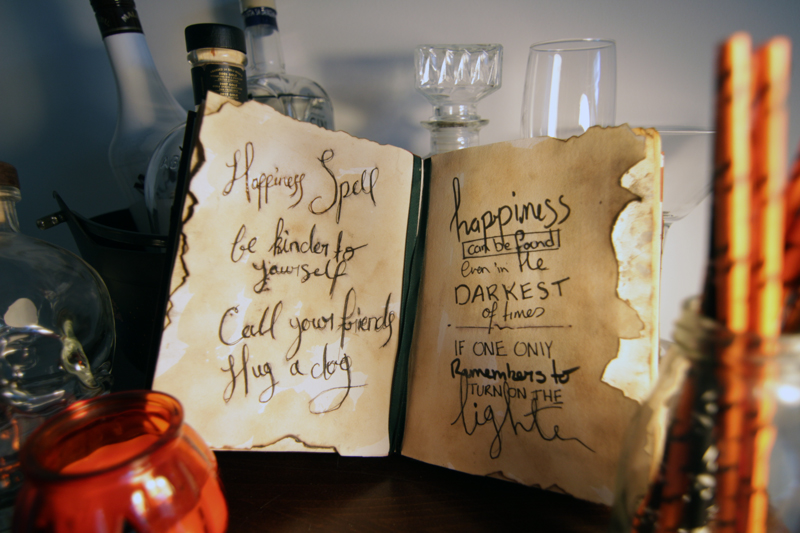 Happiness Spell
be kinder to
yourself
Call your friends
Hug a dog
happiness
can be found
even in the
DARKEST
of times
IF ONE ONLY
Remembers to
TURN ON THE
lighte